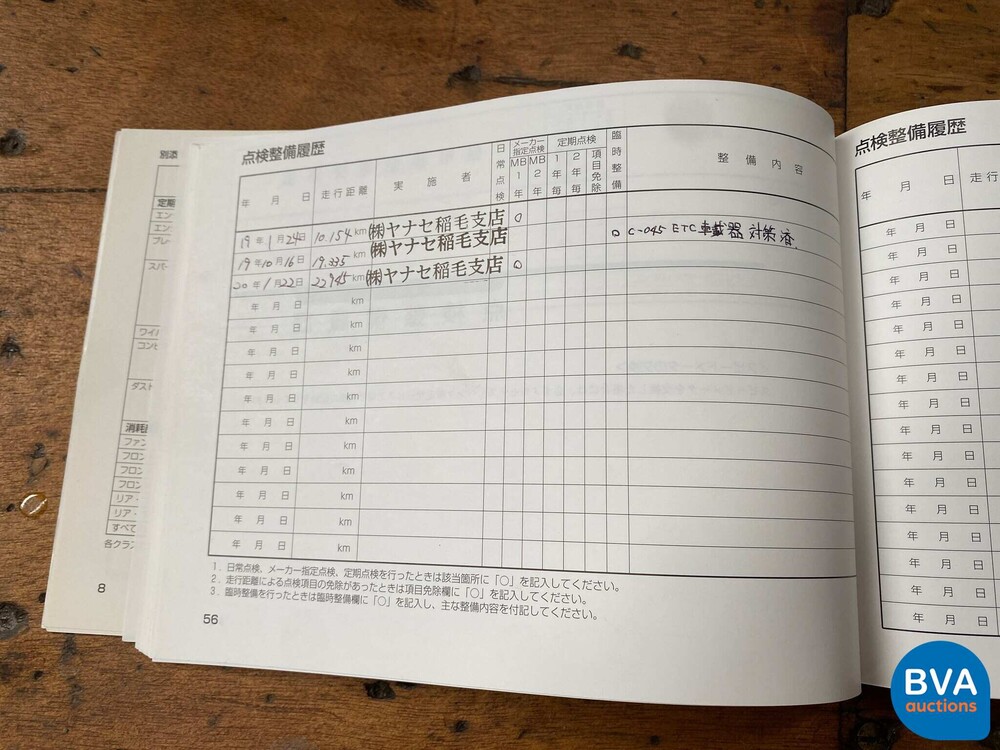 別添
定期
エン
エン
ブレー
スパー
ワイパ
コンビ
ダスト
消耗
ファン
フロン
フロン
フロン
リア・
リア・
すべて
各クラン
8
点検整備履歴
年 月 日 走行距離 実施者 日常点検 メーカー指定点検 MB1年 MB2年 定期点検 1年毎 2年毎 項目免除 臨時整備 整備内容
19年1月24日 10.154km ㈱ヤナセ稲毛支店 ○
19年10月16日 19.335km ㈱ヤナセ稲毛支店 ○ C-045 ETC車載器 対策済
20年1月22日 22945km ㈱ヤナセ稲毛支店 ○
年 月 日 km
年 月 日 km
年 月 日 km
年 月 日 km
年 月 日 km
年 月 日 km
年 月 日 km
年 月 日 km
年 月 日 km
年 月 日 km
年 月 日 km
1．日常点検，メーカー指定点検、定期点検を行ったときは該当箇所に「○」を記入してください。
2．走行距離による点検項目の免除があったときは項目免除欄に「○」を記入してください。
3．臨時整備を行ったときは臨時整備欄に「○」を記入し、主な整備内容を付記してください。
56
点検整備履歴
年 月 日 走行
年 月 日
年 月 日
年 月 日
年 月 日
年 月 日
年 月 日
年 月 日
年 月 日
年 月 日
年 月 日
年 月 日
年 月 日
年 月 日
年 月 日
年 月 日
年 月 日
BVA
auctions